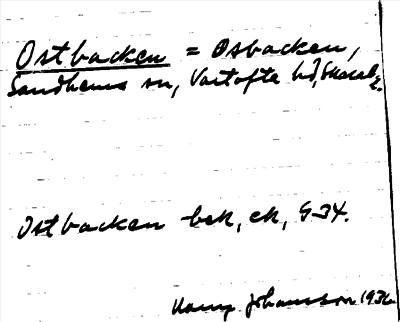 Ostbacken = Osbacken,
Sandhems sn, Vartofte hd, Skarab.
Ostbacken bek, ek, G-34.
Harry Johansson 1932